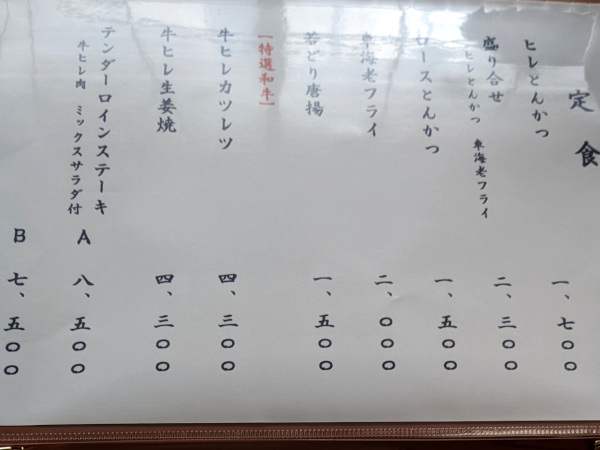 定食
ヒレとんかつ 一、七〇〇
盛り合せ 二、三〇〇
ヒレとんかつ 車海老フライ
ロースとんかつ 一、五〇〇
車海老フライ 二、〇〇〇
若どり唐揚 一、五〇〇
【特選和牛】
牛ヒレカツレツ 四、三〇〇
牛ヒレ生姜焼 四、三〇〇
テンダーロインステーキ A 八、五〇〇
牛ヒレ肉 ミックスサラダ付
B 七、五〇〇